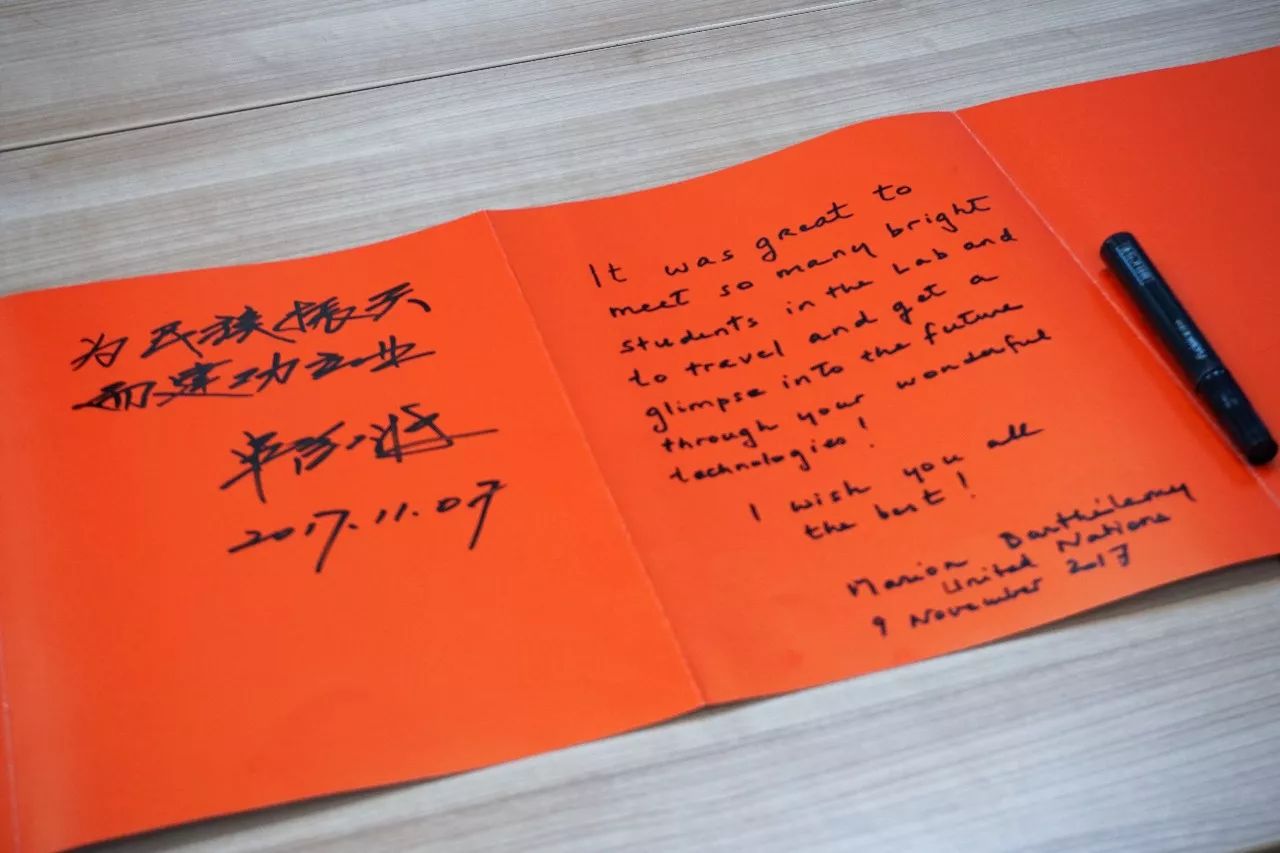 为民族振兴
而建功立业
2017.11.07
It was great to
meet so many bright
students in the Lab and
to travel and get a
glimpse into the future
through your wonderful
technologies!
I wish you all
the best!
Marion Barthélemy
United Nations
9 November 2017